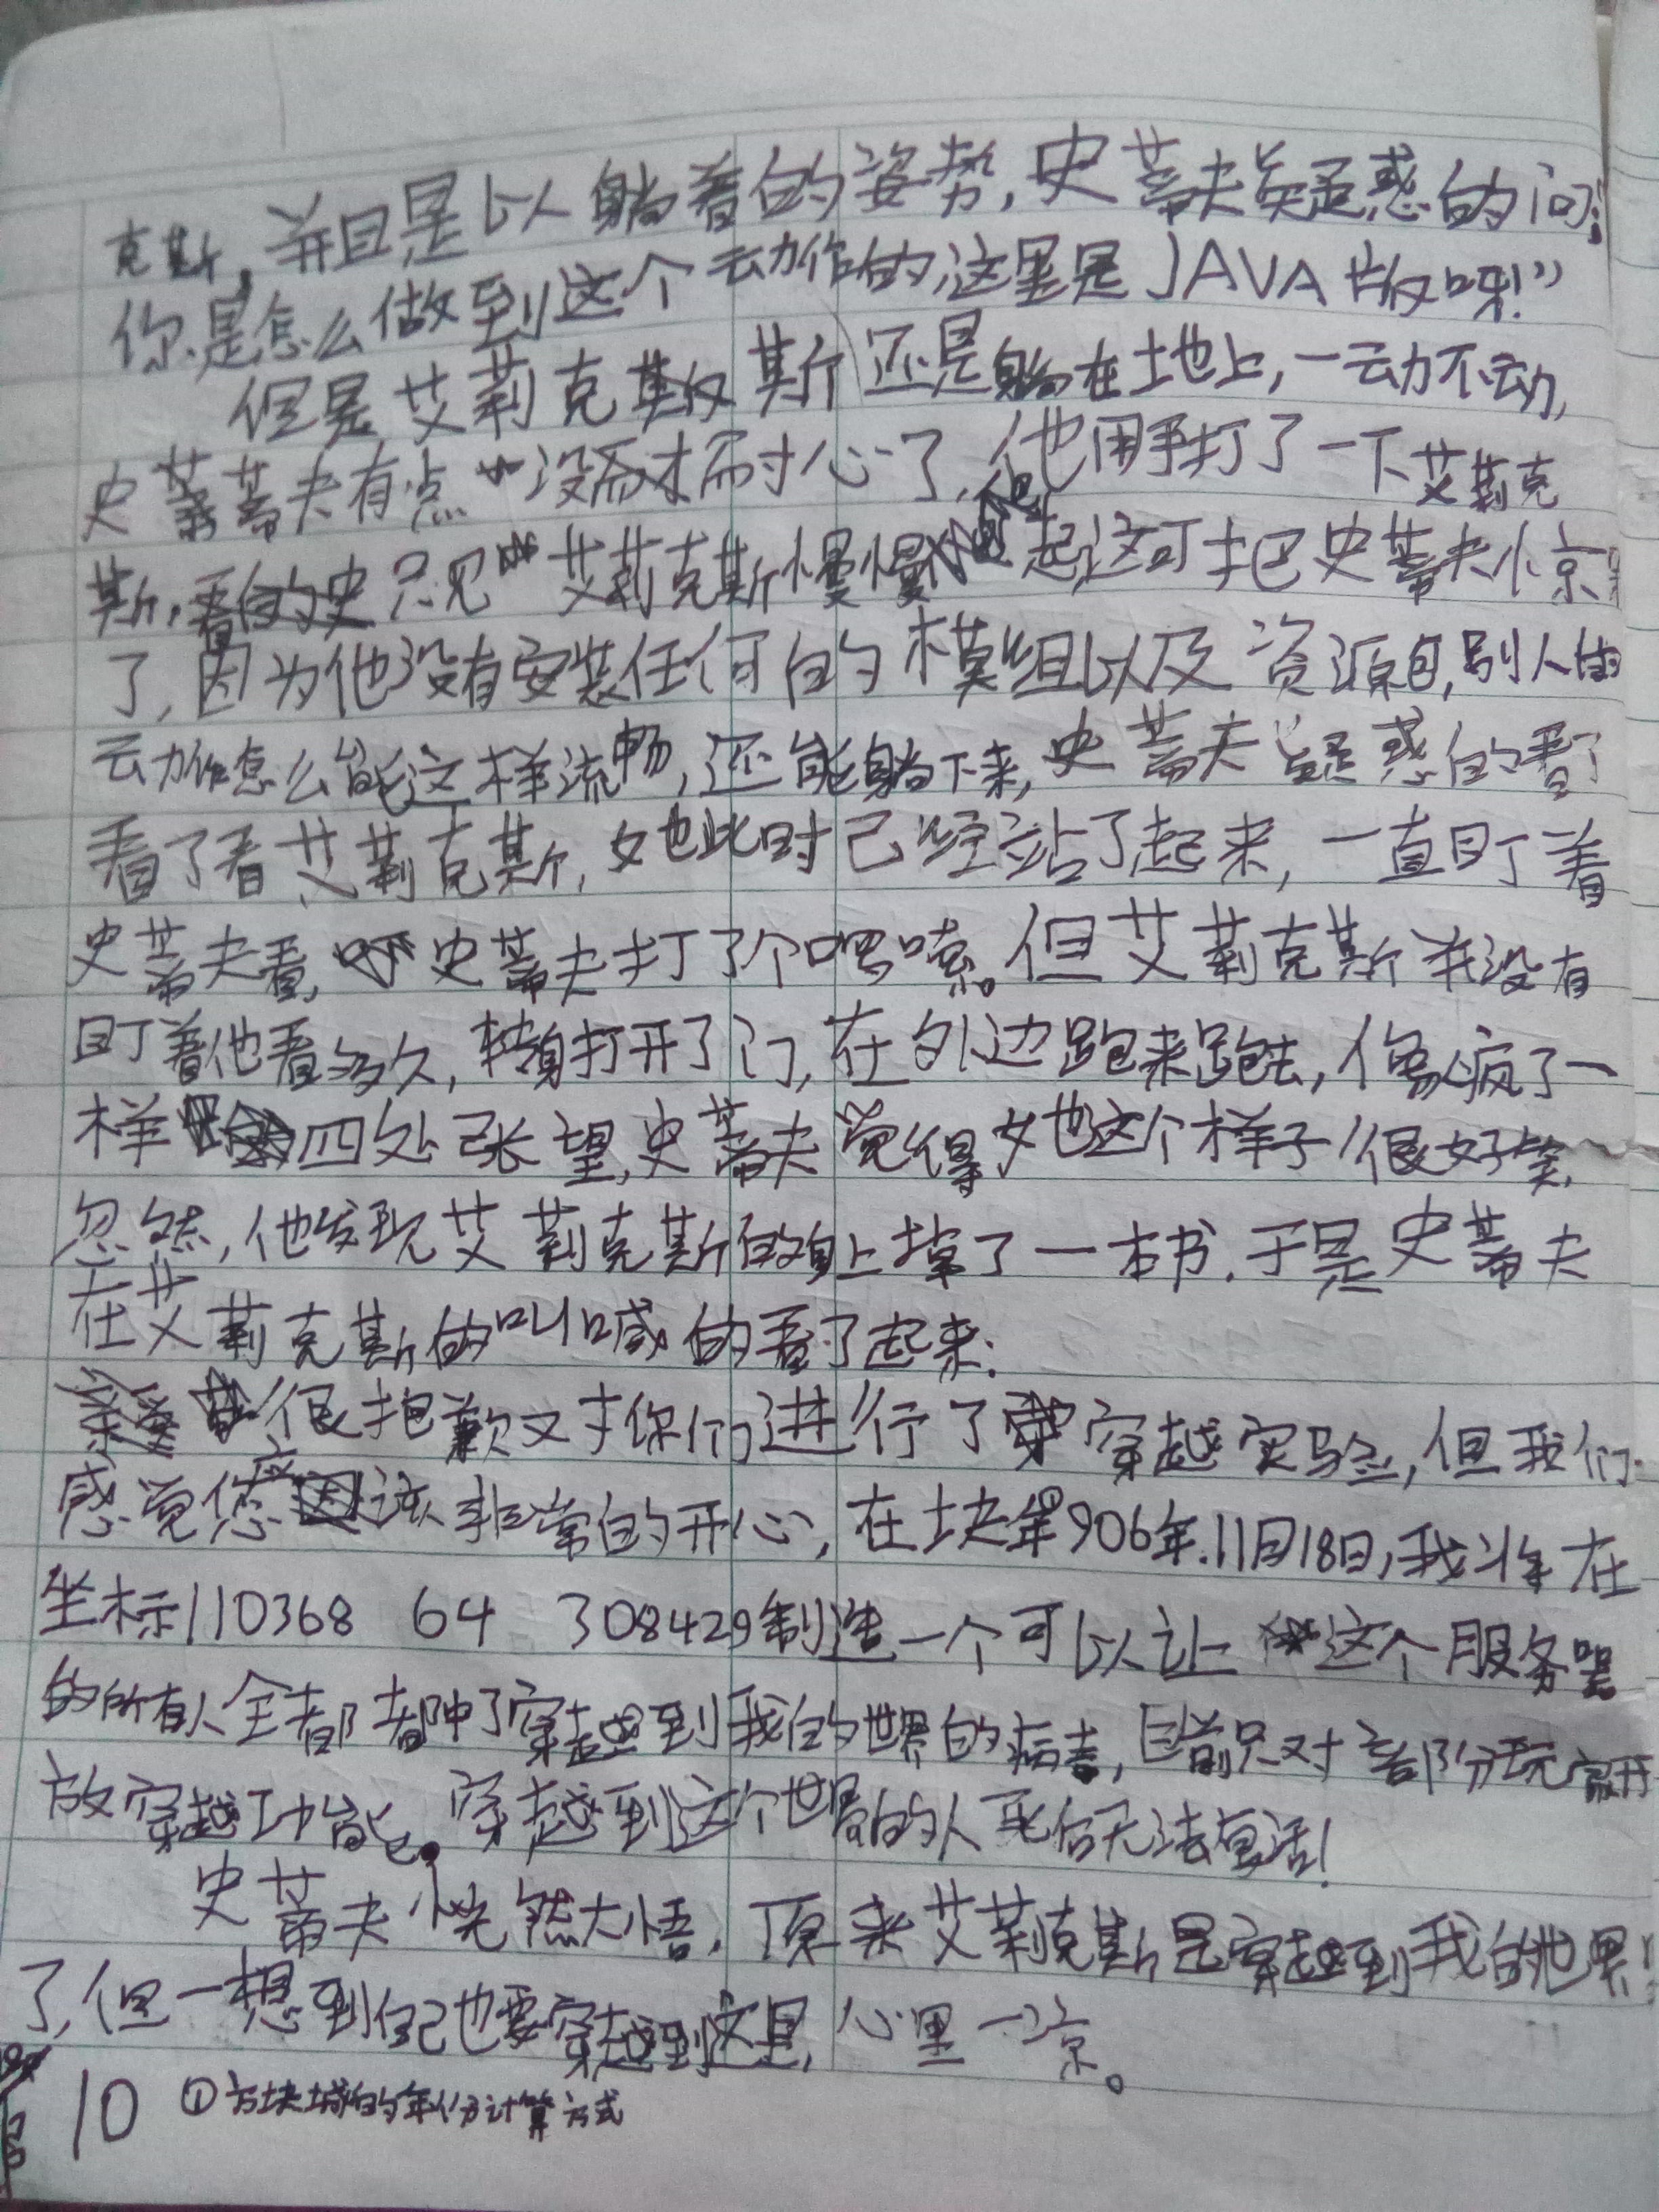 克斯，并且是以躺着的姿势，史蒂夫疑惑的问：
你是怎么做到这个动作的，这里是JAVA版呀！”
但是艾莉克斯还是躺在地上，一动不动，
史蒂夫有点没耐心了，他用手打了一下艾莉克
斯，只见艾莉克斯慢慢起，这可把史蒂夫惊
了，因为他没有安装任何的模组以及资源包，别人的
动作怎么能这样流畅，还能躺下来，史蒂夫疑惑的看了
看了看艾莉克斯，她此时已经站了起来，一直盯着
史蒂夫看，史蒂夫打了个喷嚏。但艾莉克斯并没有
盯着他看多久，转身打开了门，在外边跑来跑去，像疯了一
样四处张望，史蒂夫觉得她这个样子很好笑，
忽然，他发现艾莉克斯的身上掉了一本书，于是史蒂夫
在艾莉克斯的叫喊的看了起来：
很抱歉对你们进行了穿越实验，但我们
感觉您应该非常的开心，在块年906年.11月18日，我将在
坐标110368 64 308429制造一个可以让这个服务器
的所有人全都都穿越到我的世界的病毒，目前只对部份玩家开
放穿越功能。穿越到这个世界的人死后无法复活！
史蒂夫恍然大悟，原来艾莉克斯是穿越到我的世界
了，但一想到自己也要穿越到这里，心里一凉。
10 ①方块城的年份计算方式